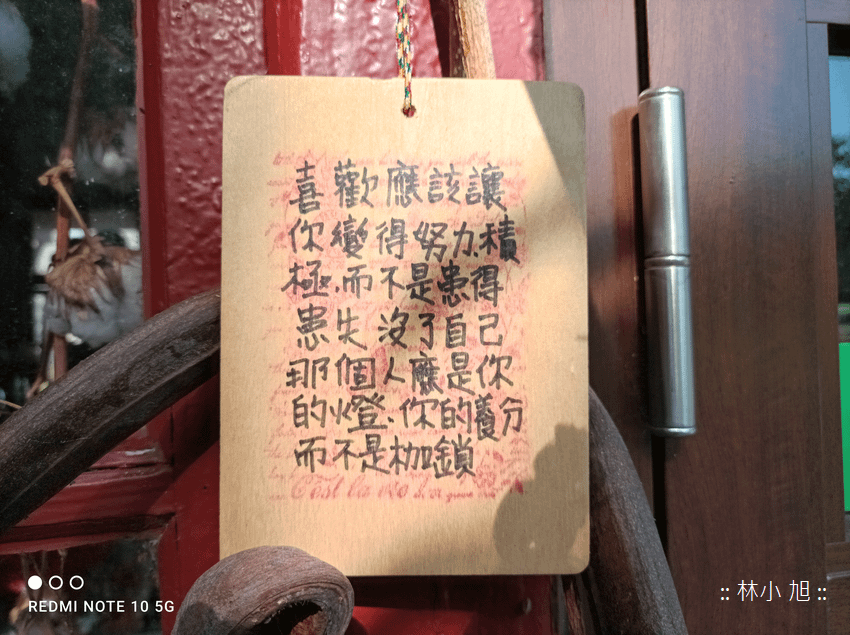 喜歡應該讓
你變得努力.積
極.而不是患得
患失 沒了自己
那個人應是你
的燈.你的養分
而不是枷鎖
C'est la vie
REDMI NOTE 10 5G
:: 林小旭 ::